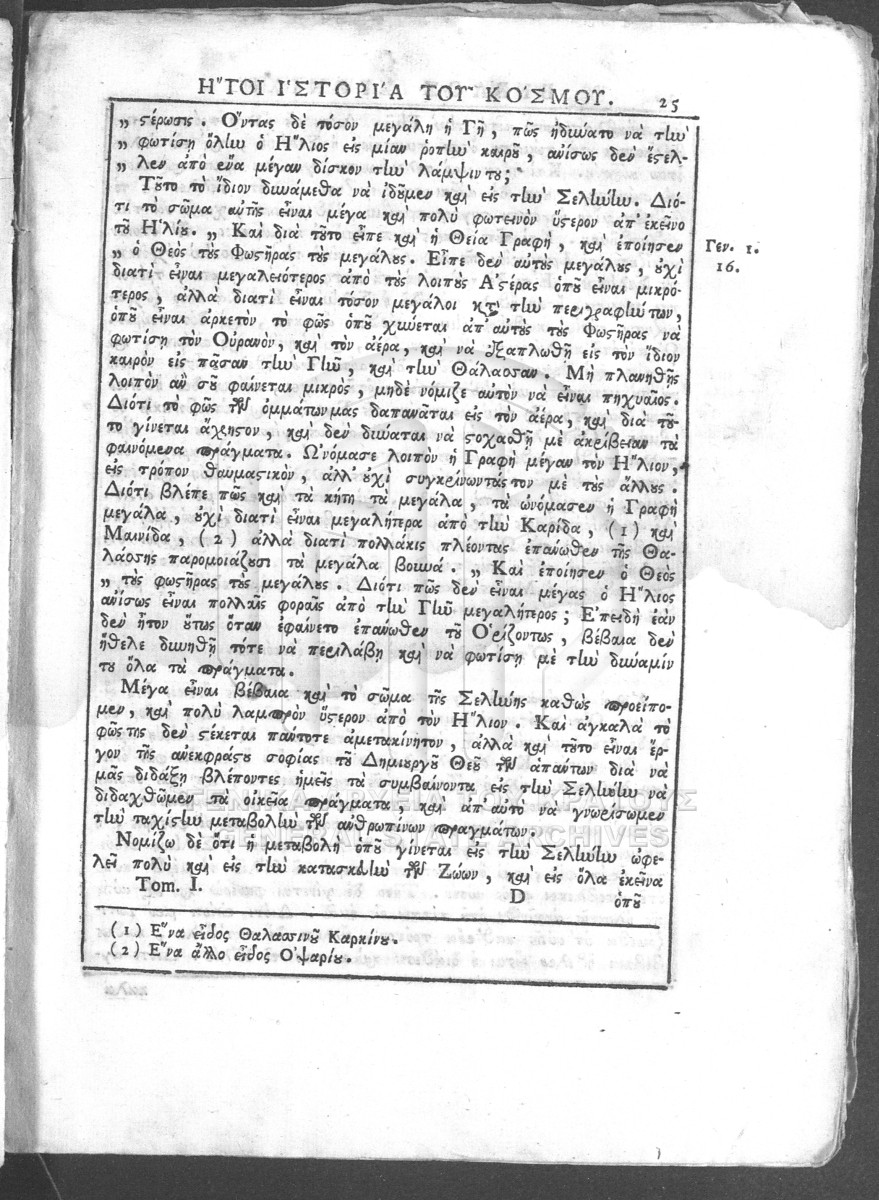 Η῎ΤΟΙ Ι῾ΣΤΟΡΙ´Α ΤΟΥ͂ ΚΟ´ΣΜΟΥ. 25
„ στέρωσις. Ὄντας δὲ τόσον μεγάλη ἡ Γῆ, πῶς ἠδιύατο νὰ τὴν
„ φωτίσῃ ὅλην ὁ Ἥλιος εἰς μίαν ῥοπὴν καιροῦ, ἀνίσως δὲν ἔστελ-
„ λεν ἀπὸ ἕνα μέγαν δίσκον τὴν λάμψιν του;
Τοῦτο τὸ ἴδιον δυνάμεθα νὰ ἰδοῦμεν καὶ εἰς τὴν Σελήνην. Διό-
τι τὸ σῶμα αὐτῆς εἶναι μέγα καὶ πολὺ φωτεινὸν ὕστερον ἀπ' ἐκεῖνο
τοῦ Ἡλίου. „ Καὶ διὰ τοῦτο εἶπε καὶ ἡ Θεία Γραφή, καὶ ἐποίησεν
Γεν. 1.
„ ὁ Θεὸς τοὺς Φωστῆρας τοὺς μεγάλους. Εἶπε δὲν αὐτοὺς μεγάλους, οὐχὶ
16.
διατὶ εἶναι μεγαλειότερος ἀπὸ τοὺς λοιποὺς Ἀστέρας ὁποῦ εἶναι μικρό-
τερος, ἀλλὰ διατὶ εἶναι τόσον μεγάλοι κτ' τὴν περιγραφὴν των,
ὁποῦ εἶναι ἀρκετὸν τὸ φῶς ὁποῦ χύνεται ἀπ' αὐτοὺς τοὺς Φωστῆρας νὰ
φωτίσῃ τὸν Οὐρανὸν, καὶ τὸν ἀέρα, καὶ νὰ ἐξαπλωθῇ εἰς τὸν ἴδιον
καιρὸν εἰς πᾶσαν τὴν Γῆν, καὶ τὴν Θάλασσαν. Μὴ πλανηθῇς
λοιπὸν ἂν σοῦ φαίνεται μικρὸς, μηδὲ νόμιζε αὐτὸν νὰ εἶναι πηχυαῖος.
Διότι τὸ φῶς τῶν ὀμμάτων μας δαπανᾶται εἰς τὸν ἀέρα, καὶ διὰ τοῦ-
το γίνεται ἄχρηστον, καὶ δὲν δύναται νὰ στοχασθῇ μὲ ἀκρίβειαν τὰ
φαινόμενα πράγματα. Ὠνόμασε λοιπὸν ἡ Γραφὴ μέγαν τὸν Ἥλιον,
εἰς τρόπον θαυμαστικὸν, ἀλλ' οὐχὶ συγκρίνωντάς τον μὲ τοὺς ἄλλους.
Διότι βλέπε πῶς καὶ τὰ κήτη τὰ μεγάλα, τὰ ὠνόμασεν ἡ Γραφὴ
μεγάλα, οὐχὶ διατὶ εἶναι μεγαλήτερα ἀπὸ τὴν Καρίδα, (1) καὶ
Μαινίδα, (2) ἀλλὰ διατὶ πολλάκις πλέοντας ἐπάνωθεν τῆς Θα-
λάσσης παρομοιάζουσι τὰ μεγάλα βουνά. „ Καὶ ἐποίησεν ὁ Θεὸς
„ τοὺς φωστῆρας τοὺς μεγάλους. Διότι πῶς δὲν εἶναι μέγας ὁ Ἥλιος
ἀνίσως εἶναι πολλαῖς φοραῖς ἀπὸ τὴν Γῆν μεγαλήτερος; Ἐπειδὴ ἐὰν
δὲν ἦτον οὕτως ὅταν ἐφαίνετο ἐπάνωθεν τοῦ Ὁρίζοντως, βέβαια δὲν
ἤθελε δυνηθῇ τότε νὰ περιλάβῃ καὶ νὰ φωτίσῃ μὲ τὴν δύναμίν
του ὅλα τὰ πράγματα.
Μέγα εἶναι βέβαια καὶ τὸ σῶμα τῆς Σελήνης καθὼς προείπο-
μεν, καὶ πολὺ λαμπρὸν ὕστερον ἀπὸ τὸν Ἥλιον. Καὶ ἀγκαλὰ τὸ
φῶς της δὲν στέκεται πάντοτε ἀμετακίνητον, ἀλλὰ καὶ τοῦτο εἶναι ἔρ-
γον τῆς ἀνεκφράστου σοφίας τοῦ Δημιουργοῦ Θεοῦ τῶν ἁπάντων διὰ νὰ
μᾶς διδάξῃ βλέποντες ἡμεῖς τὰ συμβαίνοντα εἰς τὴν Σελήνην νὰ
διδαχθῶμεν τὰ οἰκεῖα πράγματα, καὶ ἀπ' αὐτὸ νὰ γνωρίσωμεν
τὴν ταχίστην μεταβολὴν τῶν ἀνθρωπίνων πραγμάτων.
Νομίζω δὲ ὅτι ἡ μεταβολὴ ὁποῦ γίνεται εἰς τὴν Σελήνην ὠφε-
λεῖ πολὺ καὶ εἰς τὴν κατασκευὴν τῶν Ζώων, καὶ εἰς ὅλα ἐκεῖνα
Tom. I. D ὁποῦ
(1) Ἕνα εἶδος Θαλασσινοῦ Καρκίνου.
(2) Ἕνα ἄλλο εἶδος Ὀψαρίου.
ΓΕΝΙΚΑ ΑΡΧΕΙΑ ΤΟΥ ΚΡΑΤΟΥΣ
GENERAL STATE ARCHIVES